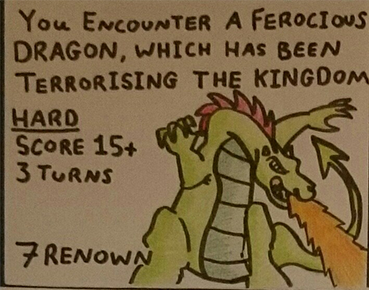 YOU ENCOUNTER A FEROCIOUS
DRAGON, WHICH HAS BEEN
TERRORISING THE KINGDOM
HARD
SCORE 15+
3 TURNS
7 RENOWN